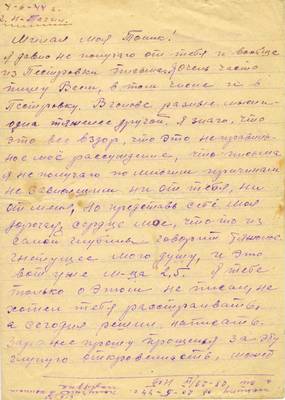 7-6-44 г.
Милая моя Тоник!
Я давно не получаю от тебя и вообще
из Пестровки письма, очень часто
пишу Вам, в том числе и в
Пестровку. В голове разные мысли
одна тяжелее другой, я знаю, что
это все вздор, что это неправиль-
ное моё рассуждение, что письма
я не получаю по многим причинам
не зависящим ни от тебя, ни
от меня, но представь себе моя
дорогая, сердце моё, что-то из
самой глубины говорит тяжёлое
гнетущее мою душу, и это
вот уже м-ца 2,5. Я тебе
только о этом не писал, не
хотел тебя расстраивать,
а сегодня решил написать.
Заранее прошу прощения за эту
глупую откровенность, может